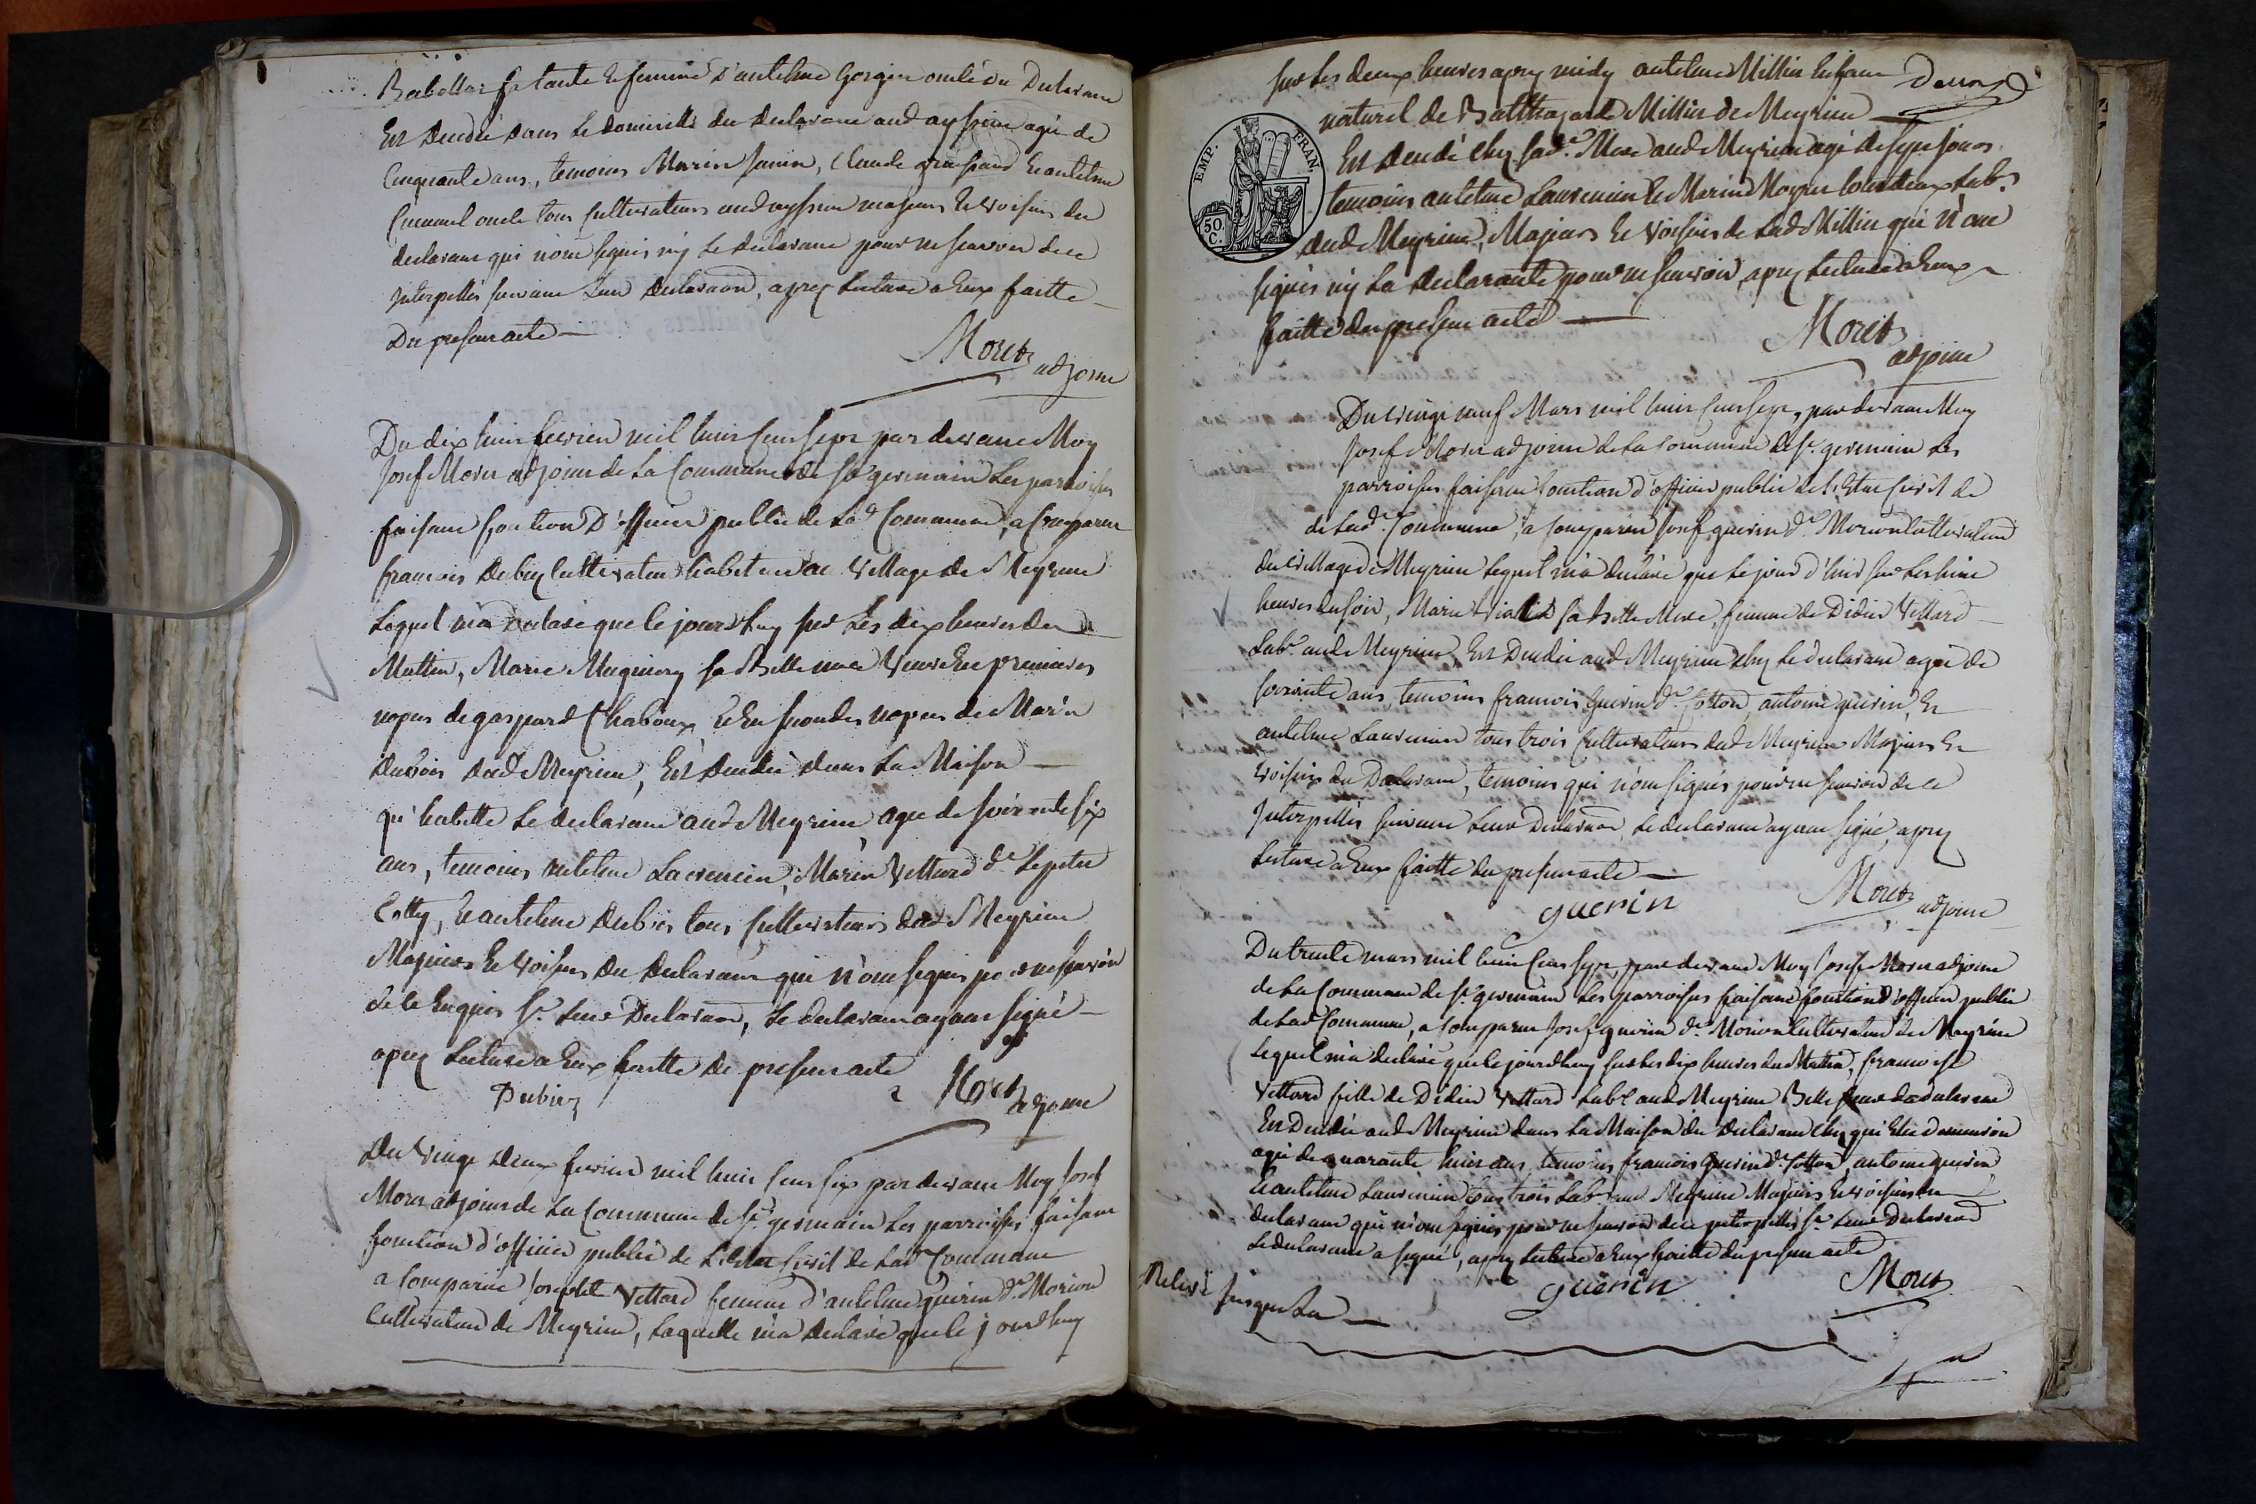 sa tante et femme d'antelme Gorgin oncle du Declarant
Est Decedée dans le domicille du declarant aud ayssieu agée de
Cinquante ans, temoins Marin Janin, Claude et antelme
oncle tous Cultivateurs aud majeurs et voisins du
declarant qui n'ont signés ny le declarant pour ne scavoir de ce
Interpellés suivant leur declaraon, aprez lecture a Eux faitte
Du present acte
Moret
adjoint
Du dix huit fevrier mil huit Cent sept par devant Moy
Josef Moret adjoint de la Commune de St germain Les parroisses
faisant fontion D'officier public de Lad Commune, a Comparu
francois Dubiez Cultivateur habitant au Village de Meyrieu
Lequel m'a declaré que le jourdhuy sur Les dix heures du
Mattin, Marie sa Belle mere Veuve En premieres
nopces de gaspard Chaboux et En secondes nopces de Marin
dubois dud Meyrieu, Est Decedée dans La Maison
qu'habitte Le declarant aud Meyrieu, agée de soixante six
ans, temoins antelme Laurencin, Marin Vettard dt Le petit
Cotty, et antelme dubiez tous Cultivateurs dud Meyrieu
Majeurs Et Voisins Du declarant qui n'ont signés pour ne scavoir
de ce Enquis St Leur Declaraon, Le declarant ayant signé
aprez Lecture a Eux faitte du present acte
Dubiez
Moret
adjoint
Du Vingt deux fevrier mil huit Cent sept par devant Moy Josef
Moret adjoint de La Commune de St germain Les parroisses faisant
fonction d'officier public de L'Etat Civil de Lad Commune
a Comparüe Josephte Vettard femme d'antelme guerin dt Morion
Cultivateur de Meyrieu, Laquelle m'a declaré que le jourdhuy
sur Les deux heures aprez midy antelme Millin Enfant
naturel de Balthazarde Millin de Meyrieu
EMP. FRAN.
50 C.
Est decedé chez sad. Mere aud Meyrieu agé de sept jours
temoins antelme Laurencin Et Marin Moyret tous deux Labrs
dud Meyrieu, Majeurs Et Voisins de Lad Millin qui n'ont
signés ny La declarante pour ne scavoir, aprez Lecture a Eux
faitte du present acte
Moret
adjoint
Du Vingt neuf Mars mil huit Cent sept, par devant Moy
Josef Moret adjoint de La Commune de St germain Les
parroisses faisant fonction d'officier public de L'Etat Civil de
de Lad. Commune, a Comparu Josef guerin dt Morion Cultivateur
du Village de Meyrieu Lequel m'a declaré que Le jour d'hui sur Les huit
heures du soir, Marie sa Belle Mere, femme de Didier Vettard
Labr aud Meyrieu, Est Decedée aud Meyrieu chez Le declarant agée de
soixante ans, temoins francois guerin dt Cotton, antoine guerin, Et
antelme Laurencin tous trois Cultivateurs dud Meyrieu Majeurs Et
Voisins du Declarant, temoins qui n'ont signés pour ne scavoir de ce
Interpellés suivant Leur Declaraon, Le declarant ayant signé, aprez
Lecture a Eux faitte du present acte
guerin
Moret
adjoint
Du trente mars mil huit Cent sept, par devant Moy Josef Moret adjoint
de La Commune de St germain Les parroisses faisant fonction d'officier public
de Lad Commune, a Comparu Josef guerin dt Morion Cultivateur de Meyrieu
Lequel m'a declaré que le jourdhuy sur Les dix heures du Mattin, francoise
Vettard fille de Didier Vettard Labr aud Meyrieu Belle soeur du declarant
Est Decedée aud Meyrieu dans La Maison du declarant chez qui Elle
agée de quarante huit ans, temoins francois guerin dt Cotton, antoine guerin
Et antelme Laurencin tous trois Labrs aud Meyrieu Majeurs Et voisins du
declarant qui n'ont signés pour ne scavoir de ce Interpellés St Leur Declaraon
Le declarant a signé, aprez Lecture a Eux faitte du present acte
guerin
Moret
Relevé jusques La